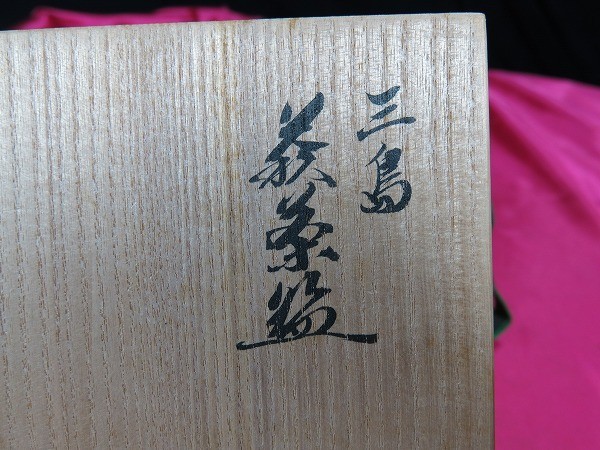 三島
萩茶盌